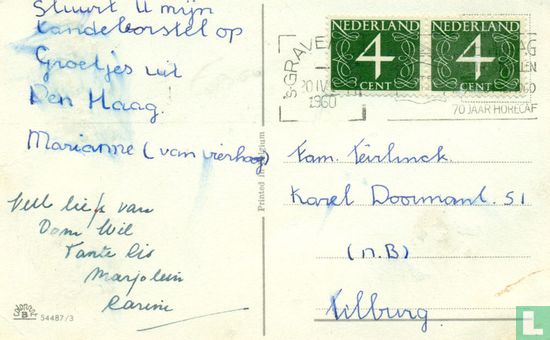 Stuurt U mijn
tandeborstel op
Groetjes uit
Den Haag.
Marianne (van vierhoog)
Veel liefs van
Oom Wil
Tante Cis
Marjolein
Carine
54487/3
Printed in Belgium
NEDERLAND
4
CENT
NEDERLAND
4
CENT
'S-GRAVEN
AG
20 IV
1960
70 JAAR HORECAF
Fam. Teirlinck.
Karel Doorman l. 51
(N.B)
Tilburg